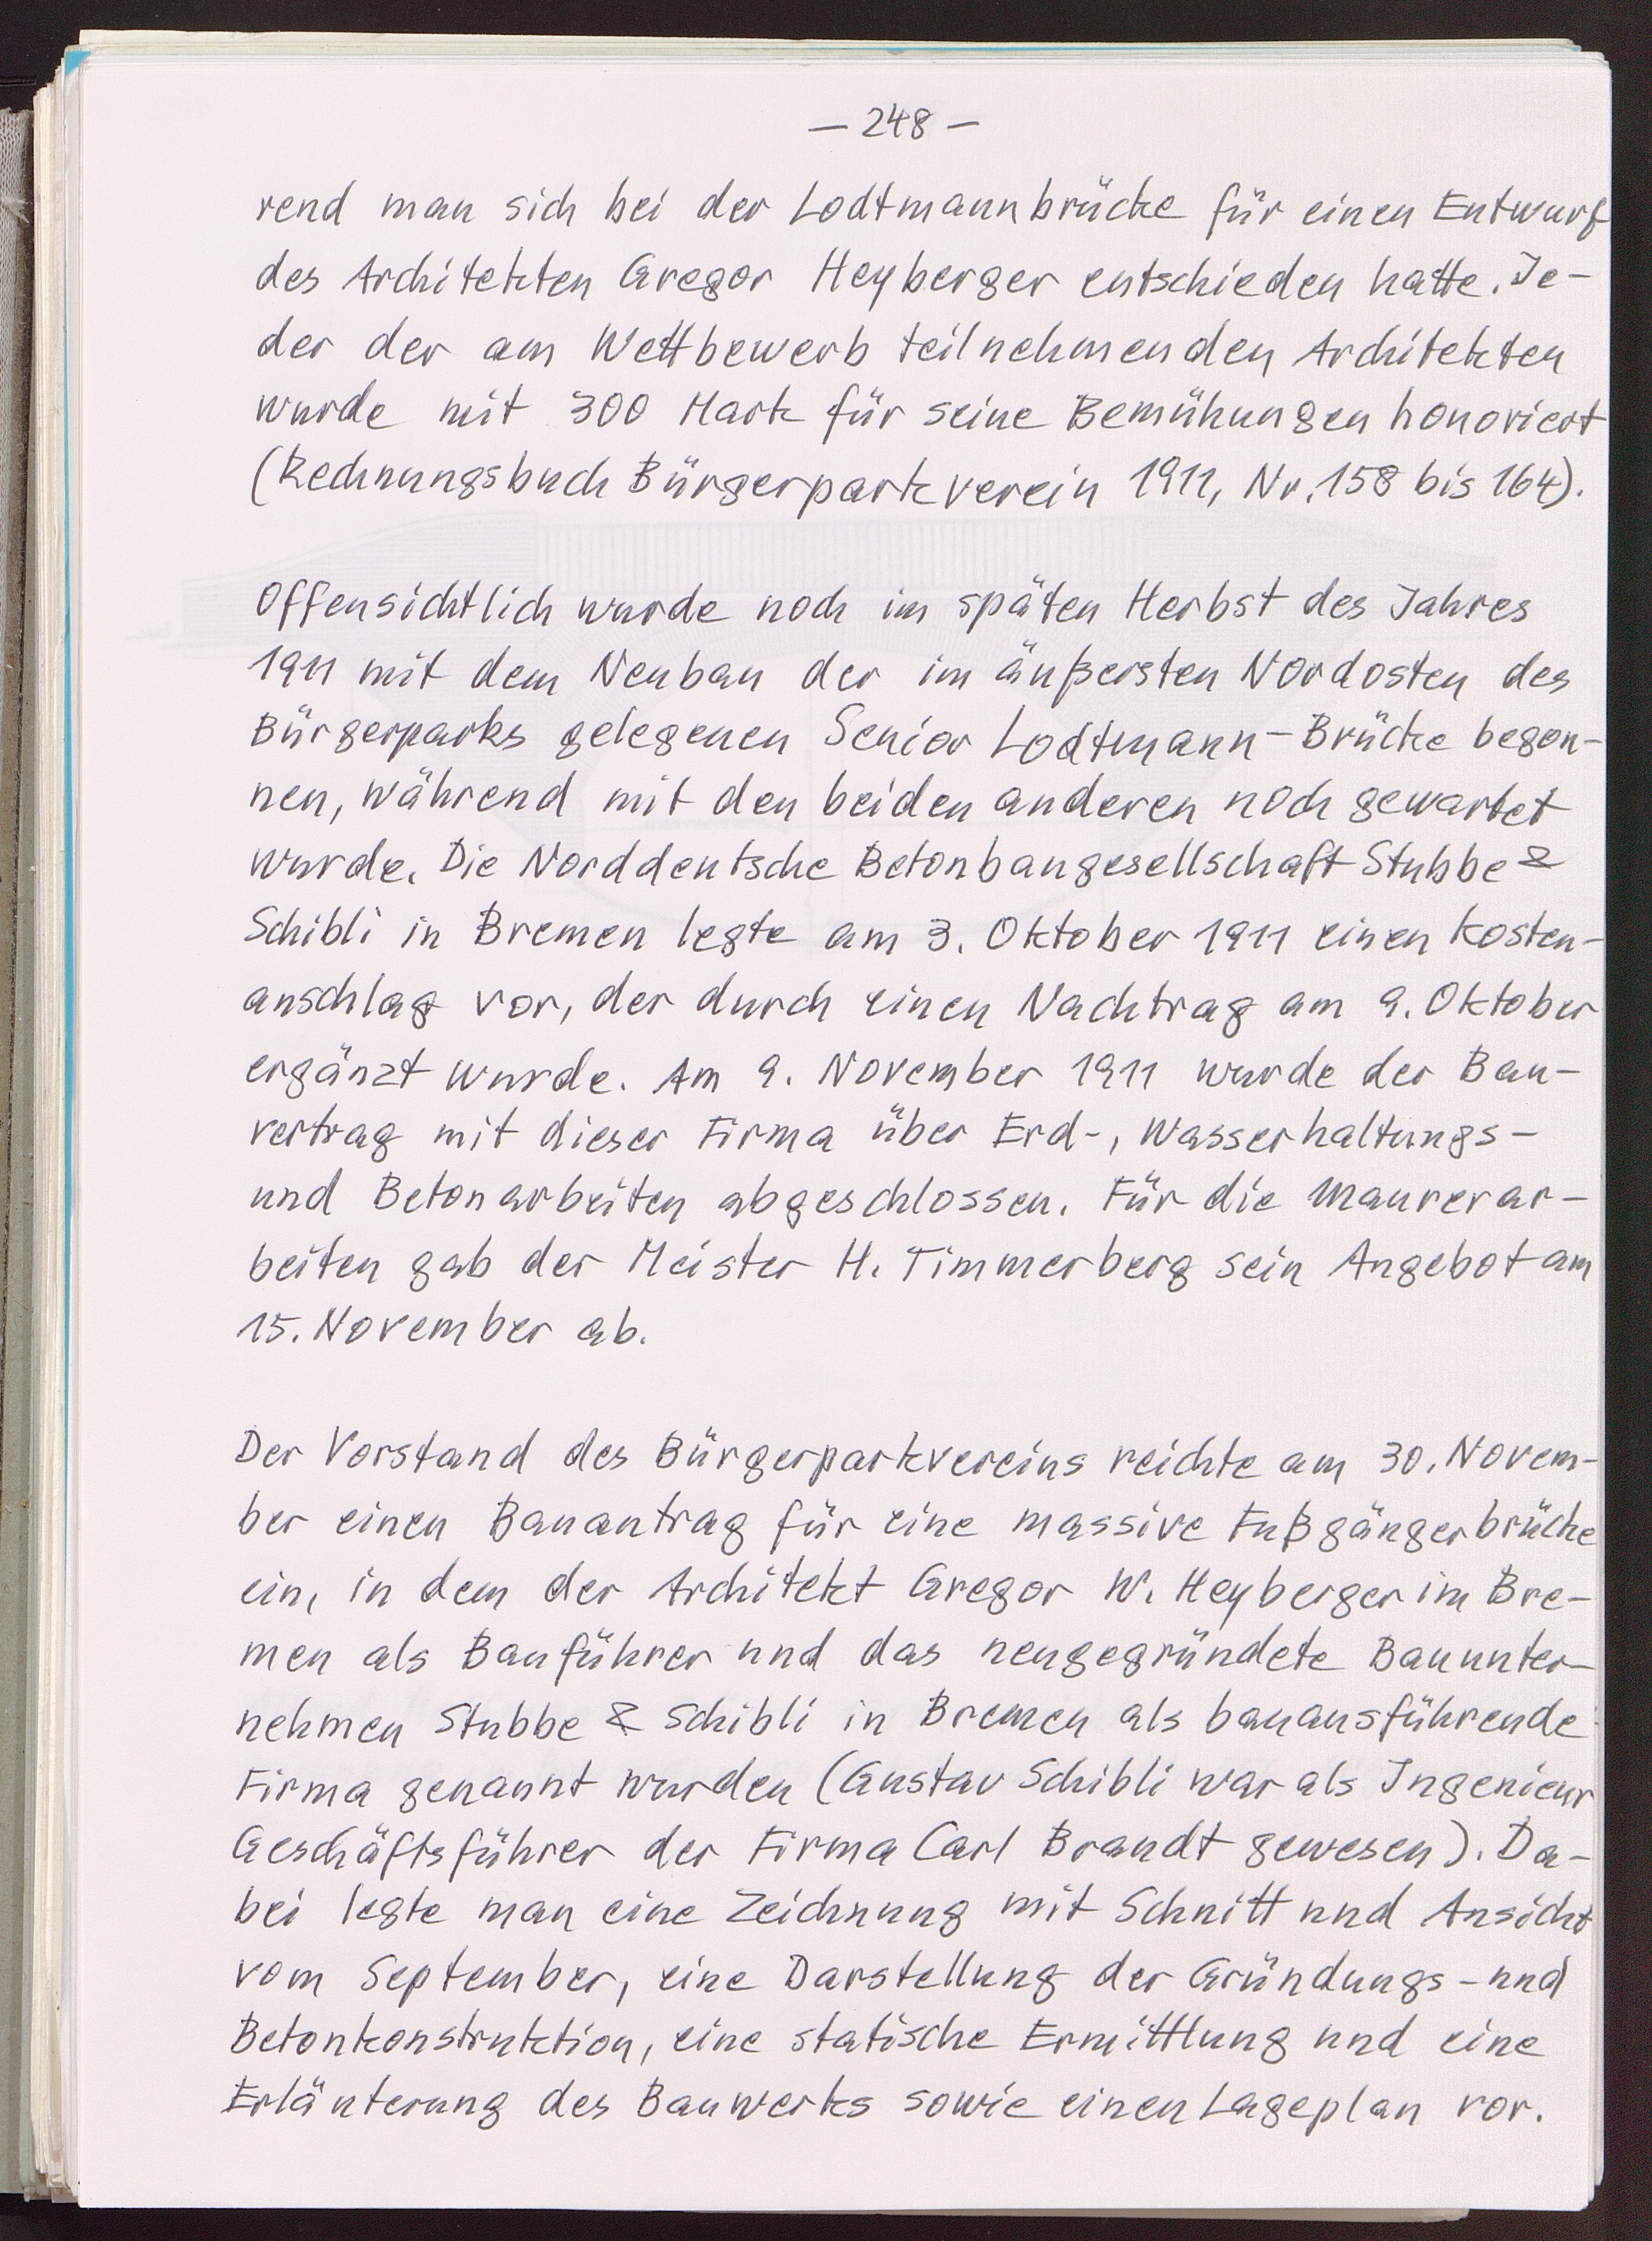 — 248 —
rend man sich bei der Lodtmannbrücke für einen Entwurf
des Architekten Gregor Heyberger entschieden hatte. Je-
der der am Wettbewerb teilnehmenden Architekten
wurde mit 300 Mark für seine Bemühungen honoriert
(Rechnungsbuch Bürgerparkverein 1911, Nr. 158 bis 164).
Offensichtlich wurde noch im späten Herbst des Jahres
1911 mit dem Neubau der im äußersten Nordosten des
Bürgerparks gelegenen Senior Lodtmann-Brücke begon-
nen, während mit den beiden anderen noch gewartet
wurde. Die Norddeutsche Betonbaugesellschaft Stubbe &
Schibli in Bremen legte am 3. Oktober 1911 einen Kosten-
anschlag vor, der durch einen Nachtrag am 9. Oktober
ergänzt wurde. Am 9. November 1911 wurde der Bau-
vertrag mit dieser Firma über Erd-, Wasserhaltungs-
und Betonarbeiten abgeschlossen. Für die Maurerar-
beiten gab der Meister H. Timmerberg sein Angebot am
15. November ab.
Der Vorstand des Bürgerparkvereins reichte am 30. Novem-
ber einen Bauantrag für eine massive Fußgängerbrücke
ein, in dem der Architekt Gregor W. Heyberger im Bre-
men als Bauführer und das neugegründete Bauunter-
nehmen Stubbe & Schibli in Bremen als bauausführende
Firma genannt wurden (Gustav Schibli war als Ingenieur
Geschäftsführer der Firma Carl Brandt gewesen). Da-
bei legte man eine Zeichnung mit Schnitt und Ansicht
vom September, eine Darstellung der Gründungs- und
Betonkonstruktion, eine statische Ermittlung und eine
Erläuterung des Bauwerks sowie einen Lageplan vor.